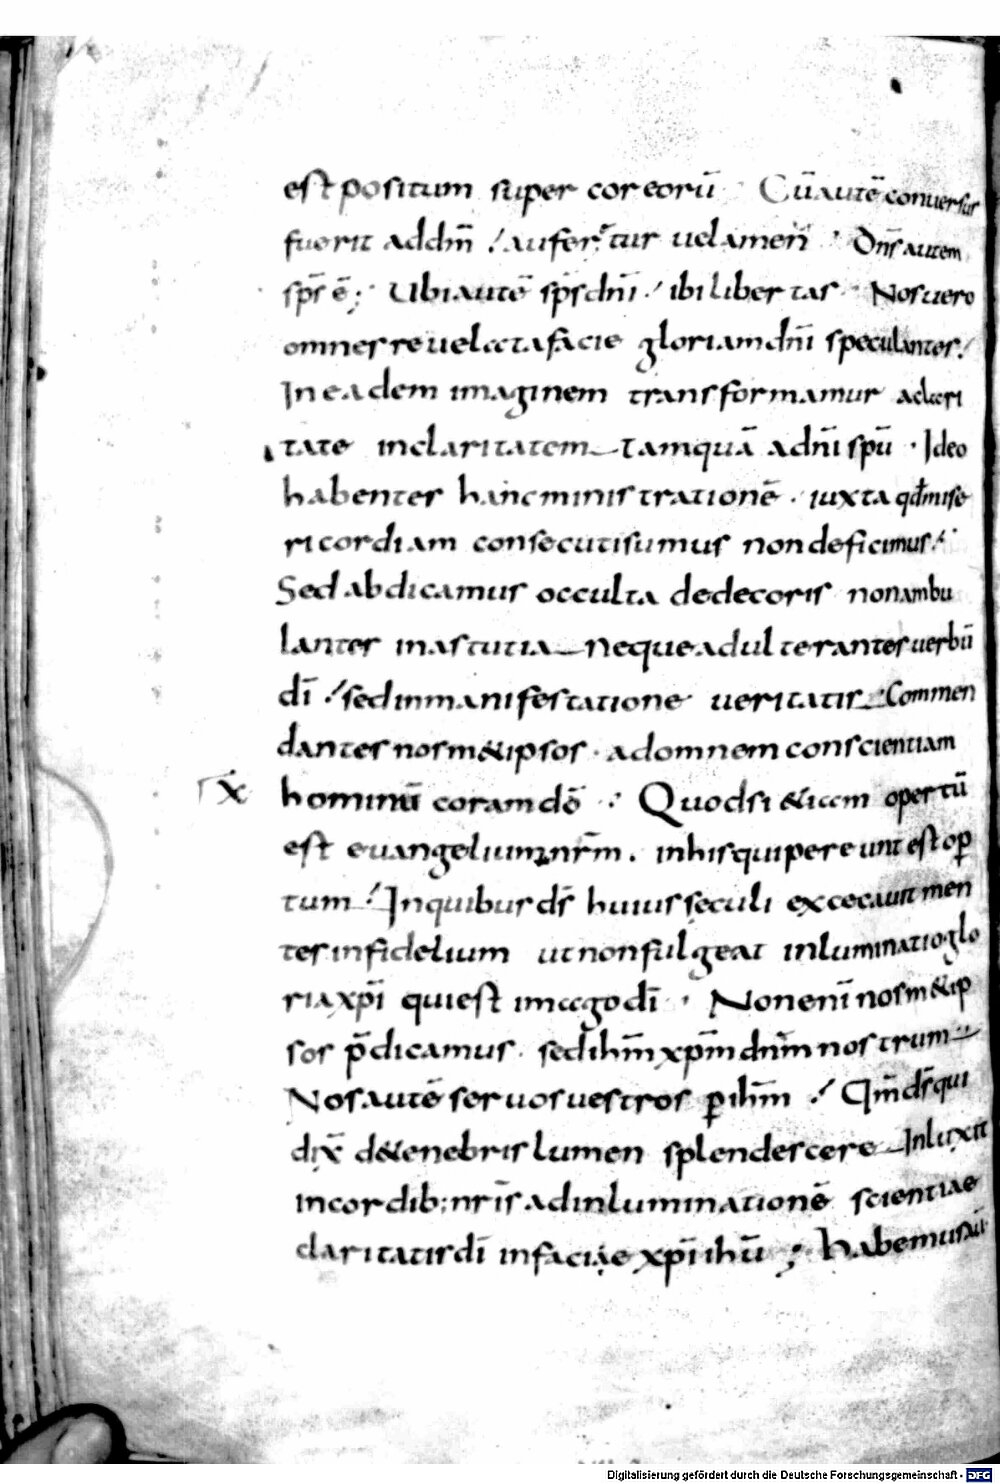 est positum super cor eorū · Cū autē conuersus
fuerit ad dm̄ / auferetur uelamen · Dn̄s autem
sp̄s ē; Ubi autē sp̄s dn̄i / ibi libertas · Nos uero
omnes reuelata facie gloriam dn̄i speculantes /
In eadem imaginem transformamur a clari
tate in claritatem Tamquā a dn̄i spū · Ideo
habentes hanc ministrationē · iuxta qđ mise
ricordiam consecuti sumus non deficimus /
Sed abdicamus occulta dedecoris non ambu
lantes in astutia neque adulterantes uerbū
dī / sed in manifestatione ueritatis Commen
dantes nosm&ipsos · ad omnem conscientiam
X hominū coram dō : Quod si &iam opertū
est euangelium nr̄m · in his qui pereunt est oper
tum / In quibus ds̄ huius seculi excecauit men
tes infidelium ut non fulgeat inluminatio glo
ria xp̄i qui est imago dī · Non enī nosm&ip
sos p̄dicamus · sed ihm̄ xp̄m dnm̄ nostrum
Nos autē seruos uestros p ihm̄ / Qm̄ ds̄ qui
dix̄ de t&enebris lumen splendescere Inluxit
in cordib; nr̄is ad inluminationē scientiae
claritatis dī in faciae xp̄i ihū ; habemus aū